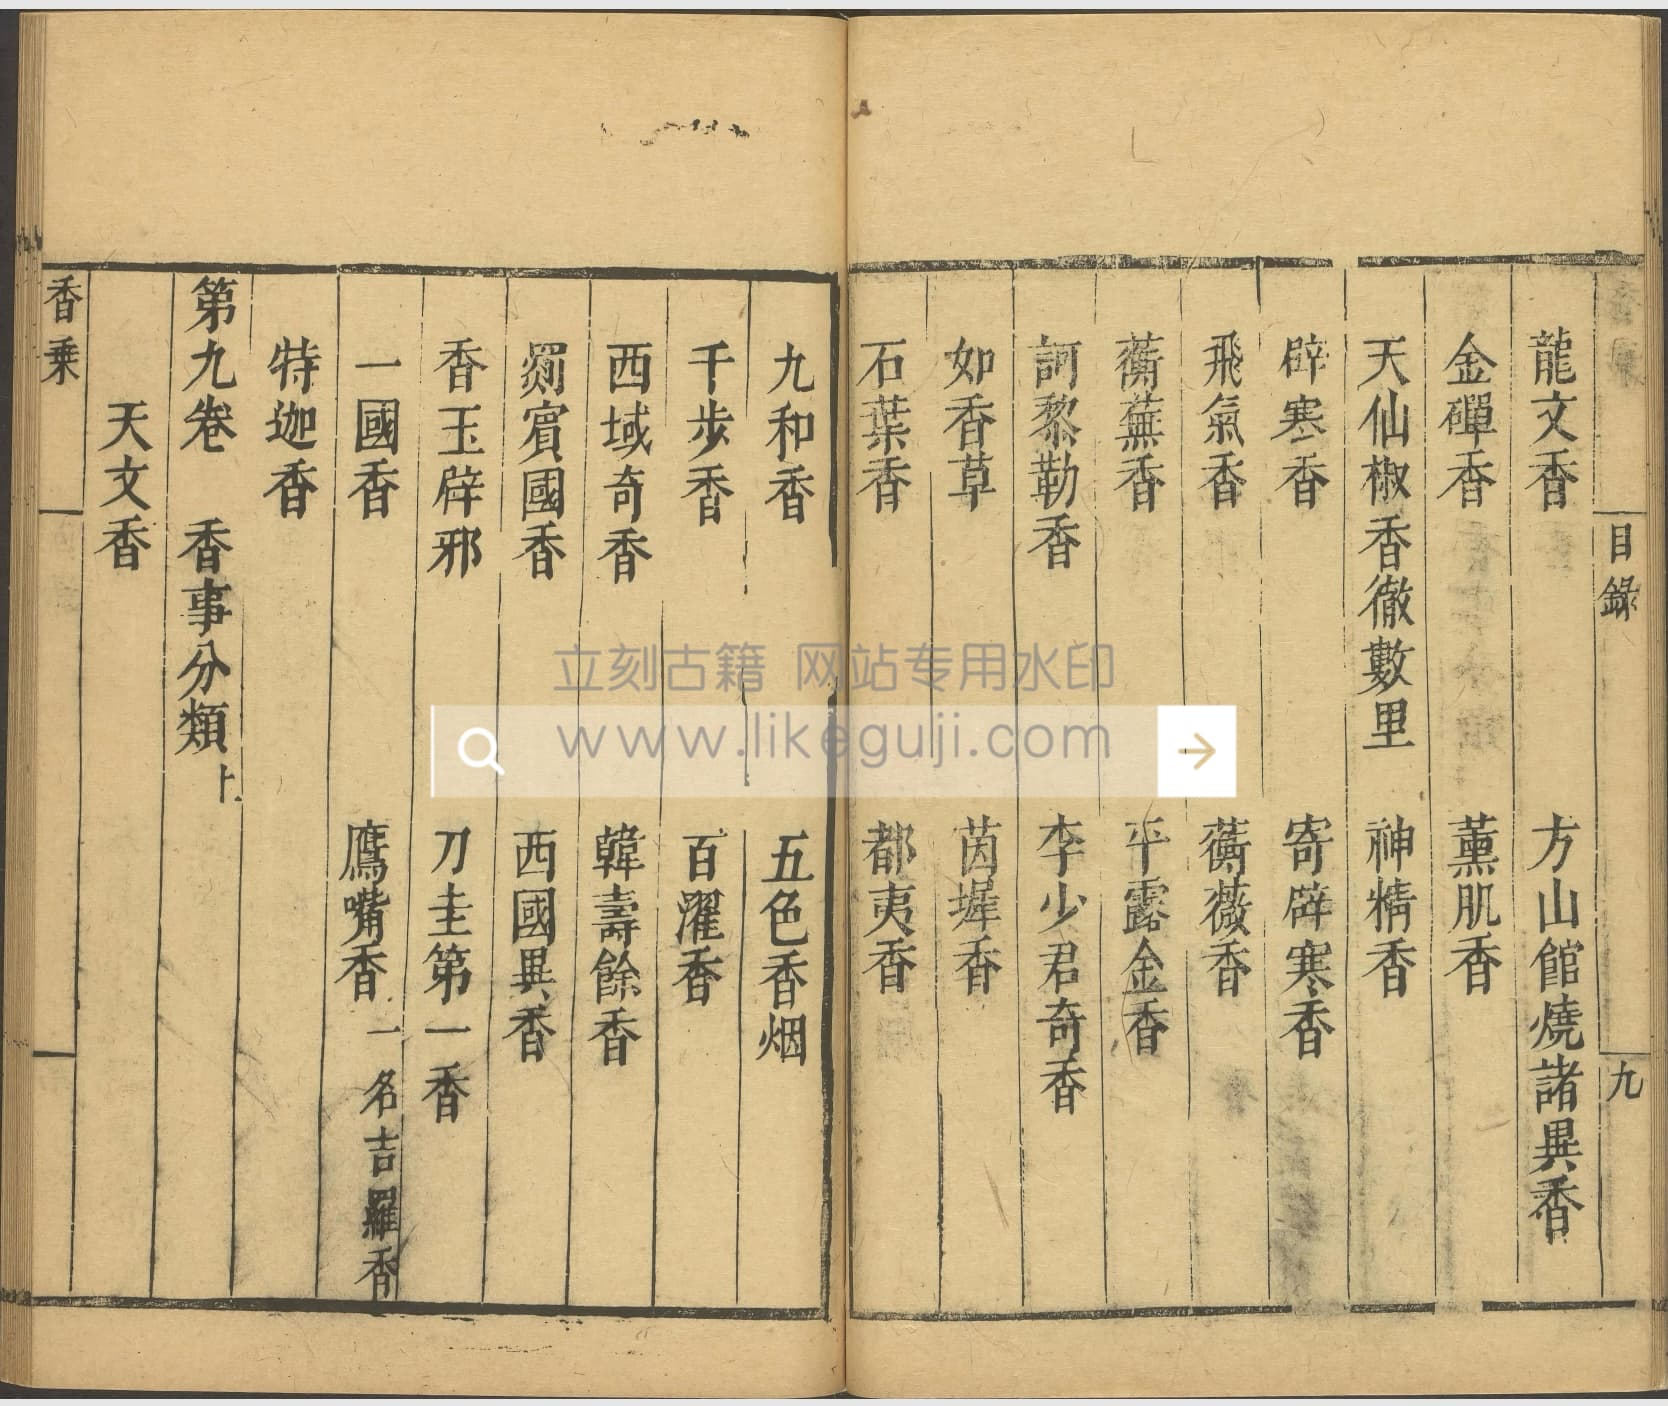 目錄
九
龍文香 方山館燒諸異香
金磾香 薰肌香
天仙椒香徹數里 神精香
辟寒香 寄辟寒香
飛氣香 蘅薇香
蘅蕪香 平露金香
訶黎勒香 李少君奇香
如香草 茵墀香
石葉香 都夷香
九和香 五色香烟
千步香 百濯香
西域奇香 韓壽餘香
罽賓國香 西國異香
香玉辟邪 刀圭第一香
一國香 鷹嘴香 一名吉羅香
特迦香
第九卷 香事分類上
天文香
香乗
立刻古籍 网站专用水印
www.likeguji.com